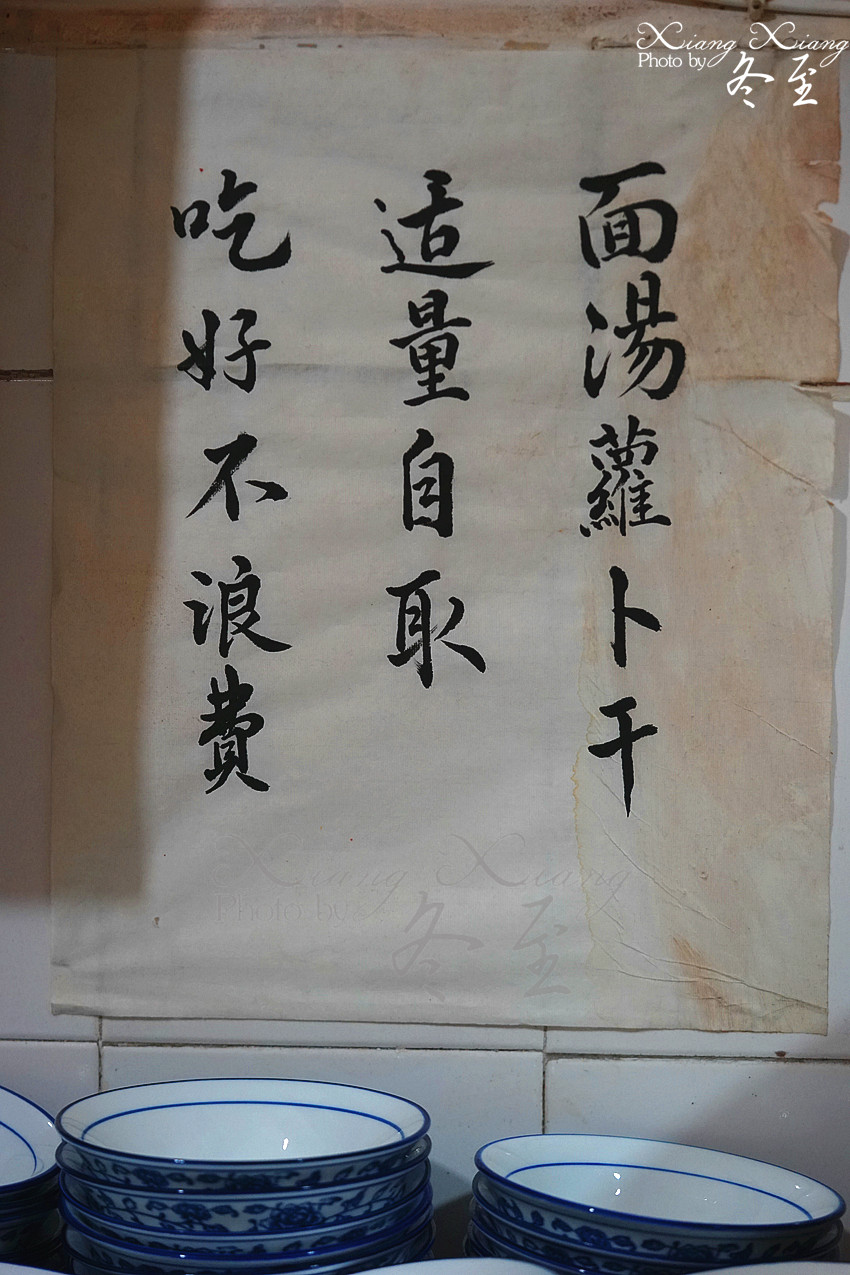 面湯蘿卜干
适量自取
吃好不浪費
Xiang Xiang
Photo by 冬至
Xiang Xiang
Photo by 冬至